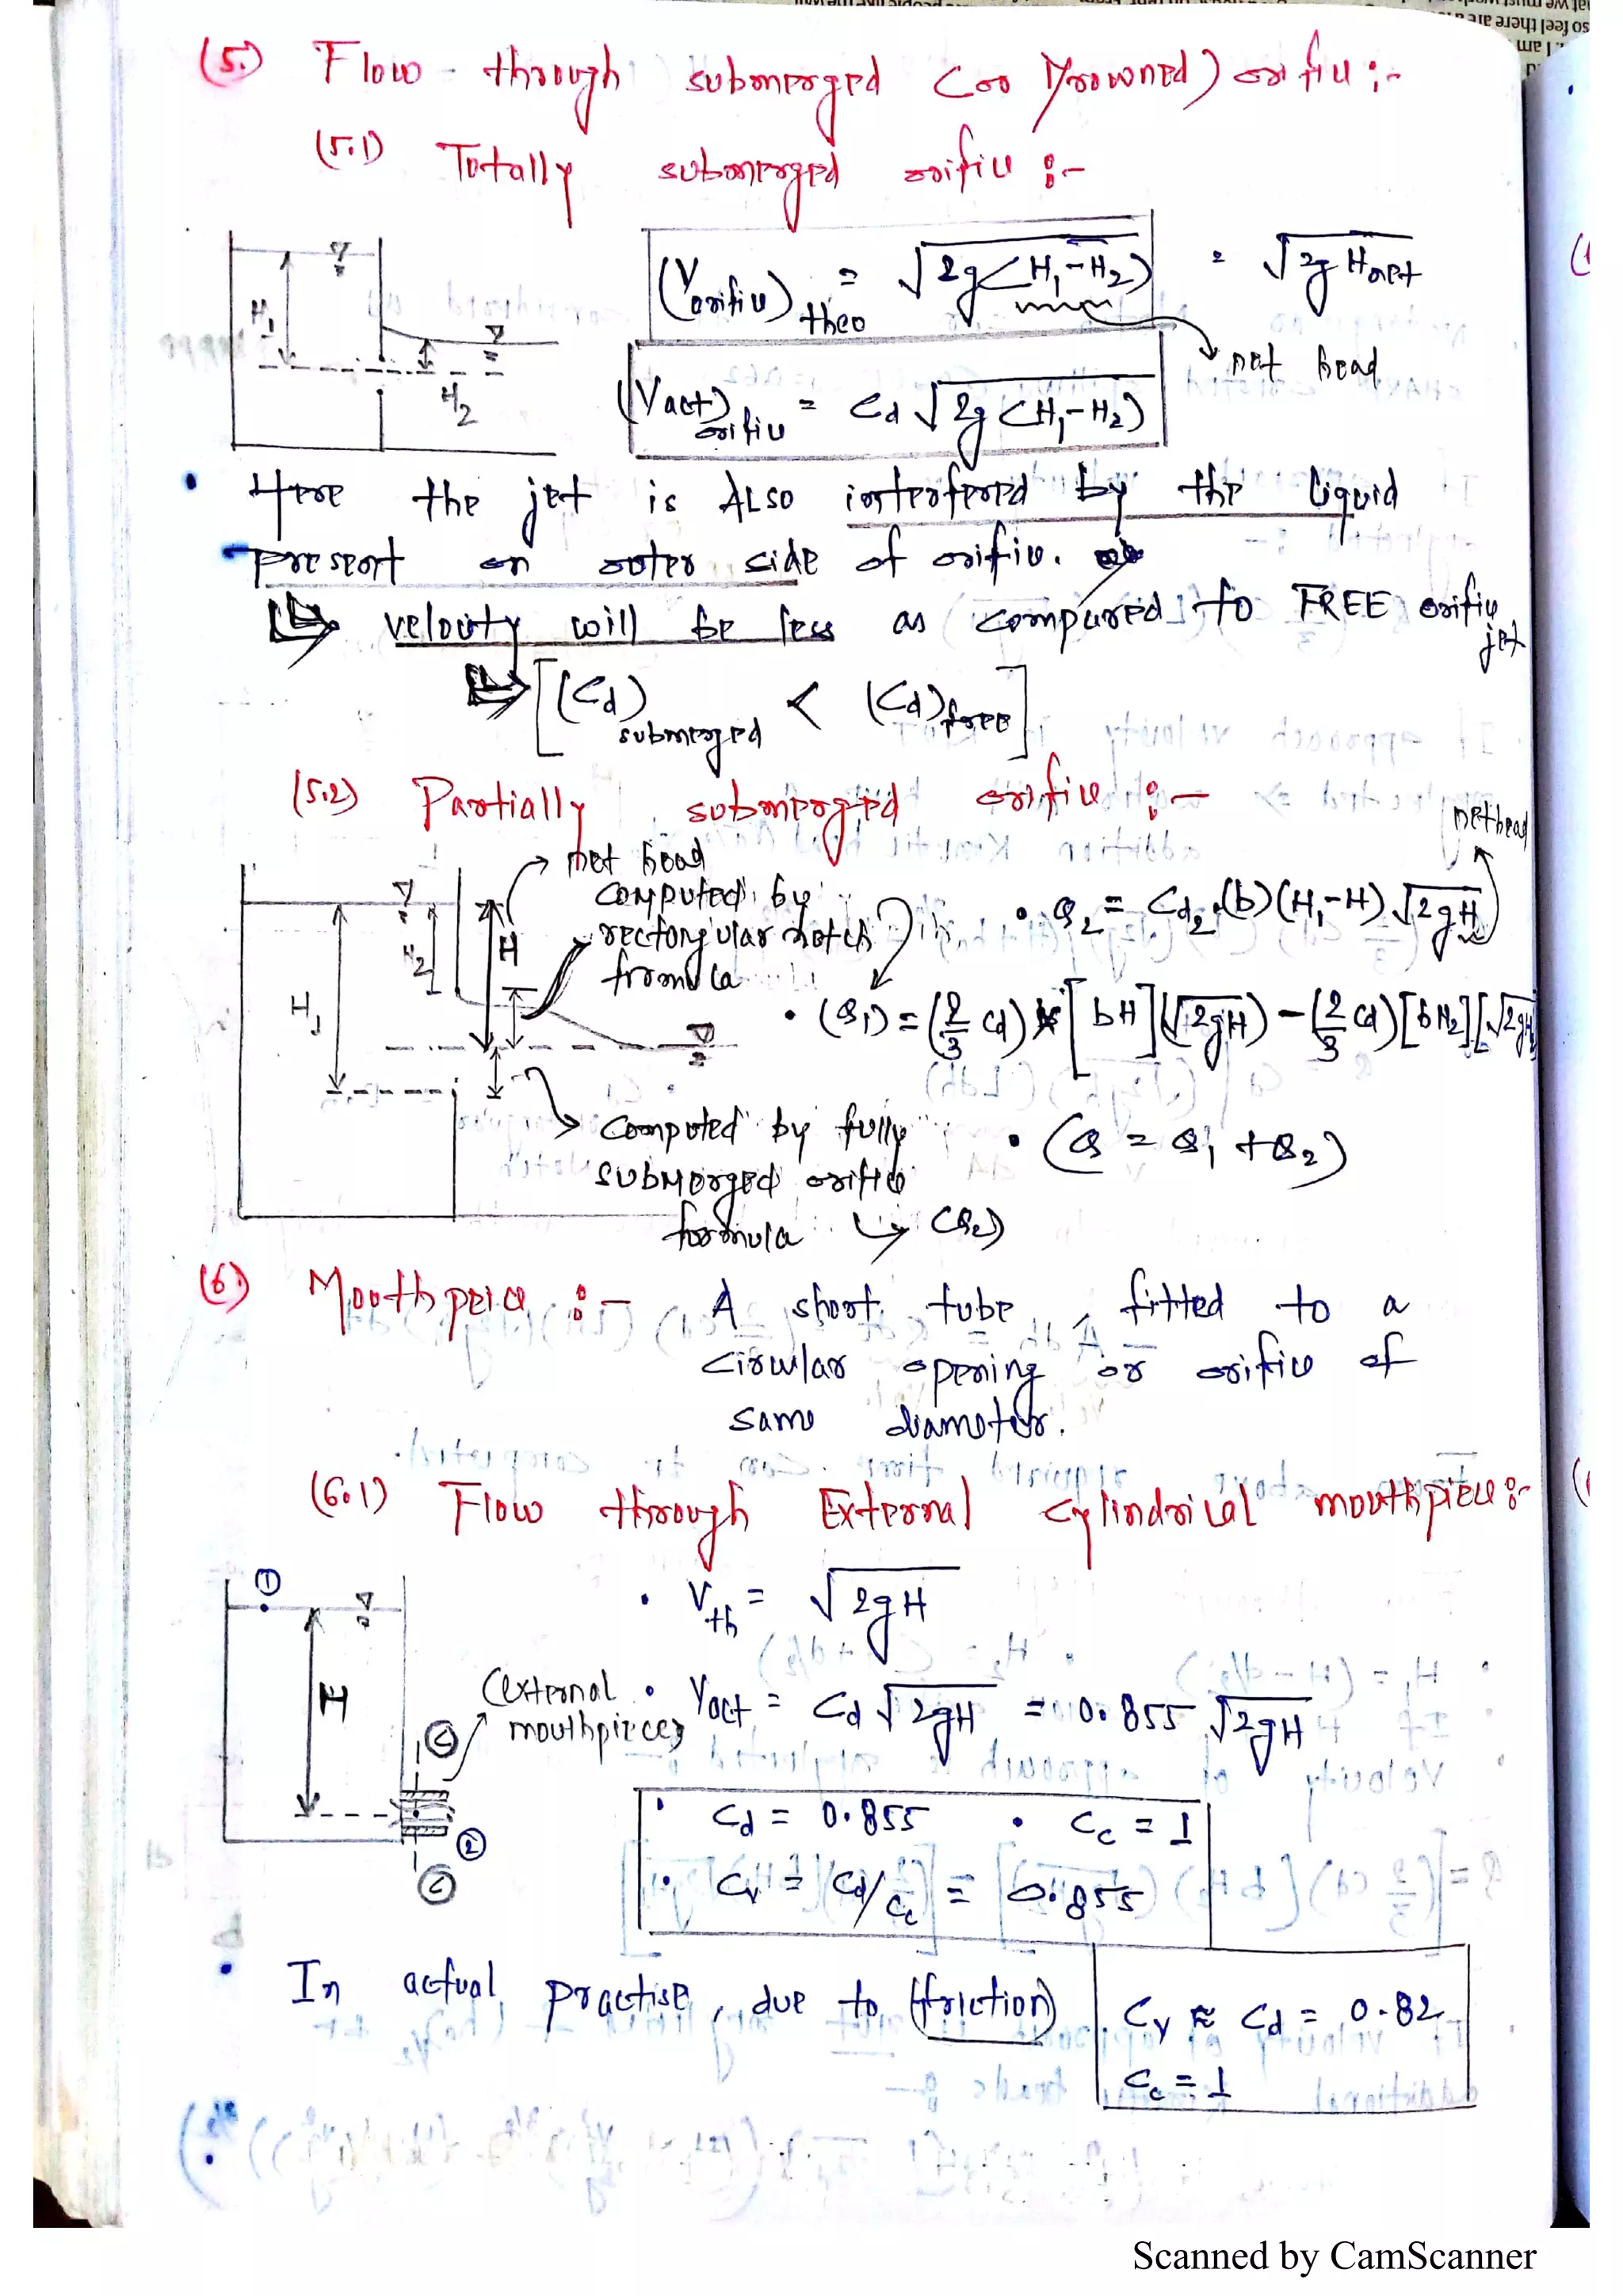 (5.) Flow through submerged (or Drowned) orifice :-
(5.1) Totally submerged orifice :-
(V orifice) theo = √2g(H₁-H₂) = √2g Hnet
net head
H₁
H₂
(Vact) orifice = Cd √2g(H₁-H₂)
• Here the jet is ALSO interferred by the liquid
present on outer side of orifice.
velocity will be less as compared to FREE orifice
jet
[(Cd) submerged < (Cd) free]
(5.2) Partially submerged orifice :-
net head
net head
computed by
rectangular notch
formula
• Q₂ = Cd₂.(b)(H₁-H) √2gH
H₁
H₂
H
• (Q₁) = (2/3 Cd) [bH] (√2gH) - (2/3 Cd) [bH₂] [√2gH
computed by fully
submerged orifice
formula → (Q₂)
• (Q = Q₁ + Q₂)
(6) Mouthpeice :- A short tube, fitted to a
circular opening or orifice of
same diameter.
(6.1) Flow through External cylindrical mouthpiece :-
①
H
• Vth = √2gH
(external
mouthpiece)
• Vact = Cd √2gH = 0.855 √2gH
C
②
C
• Cd = 0.855 • Cc = 1
• Cv = Cd/Cc = 0.855
• In actual practise, due to (friction)
Cv ≈ Cd = 0.82
Cc = 1
Scanned by CamScanner